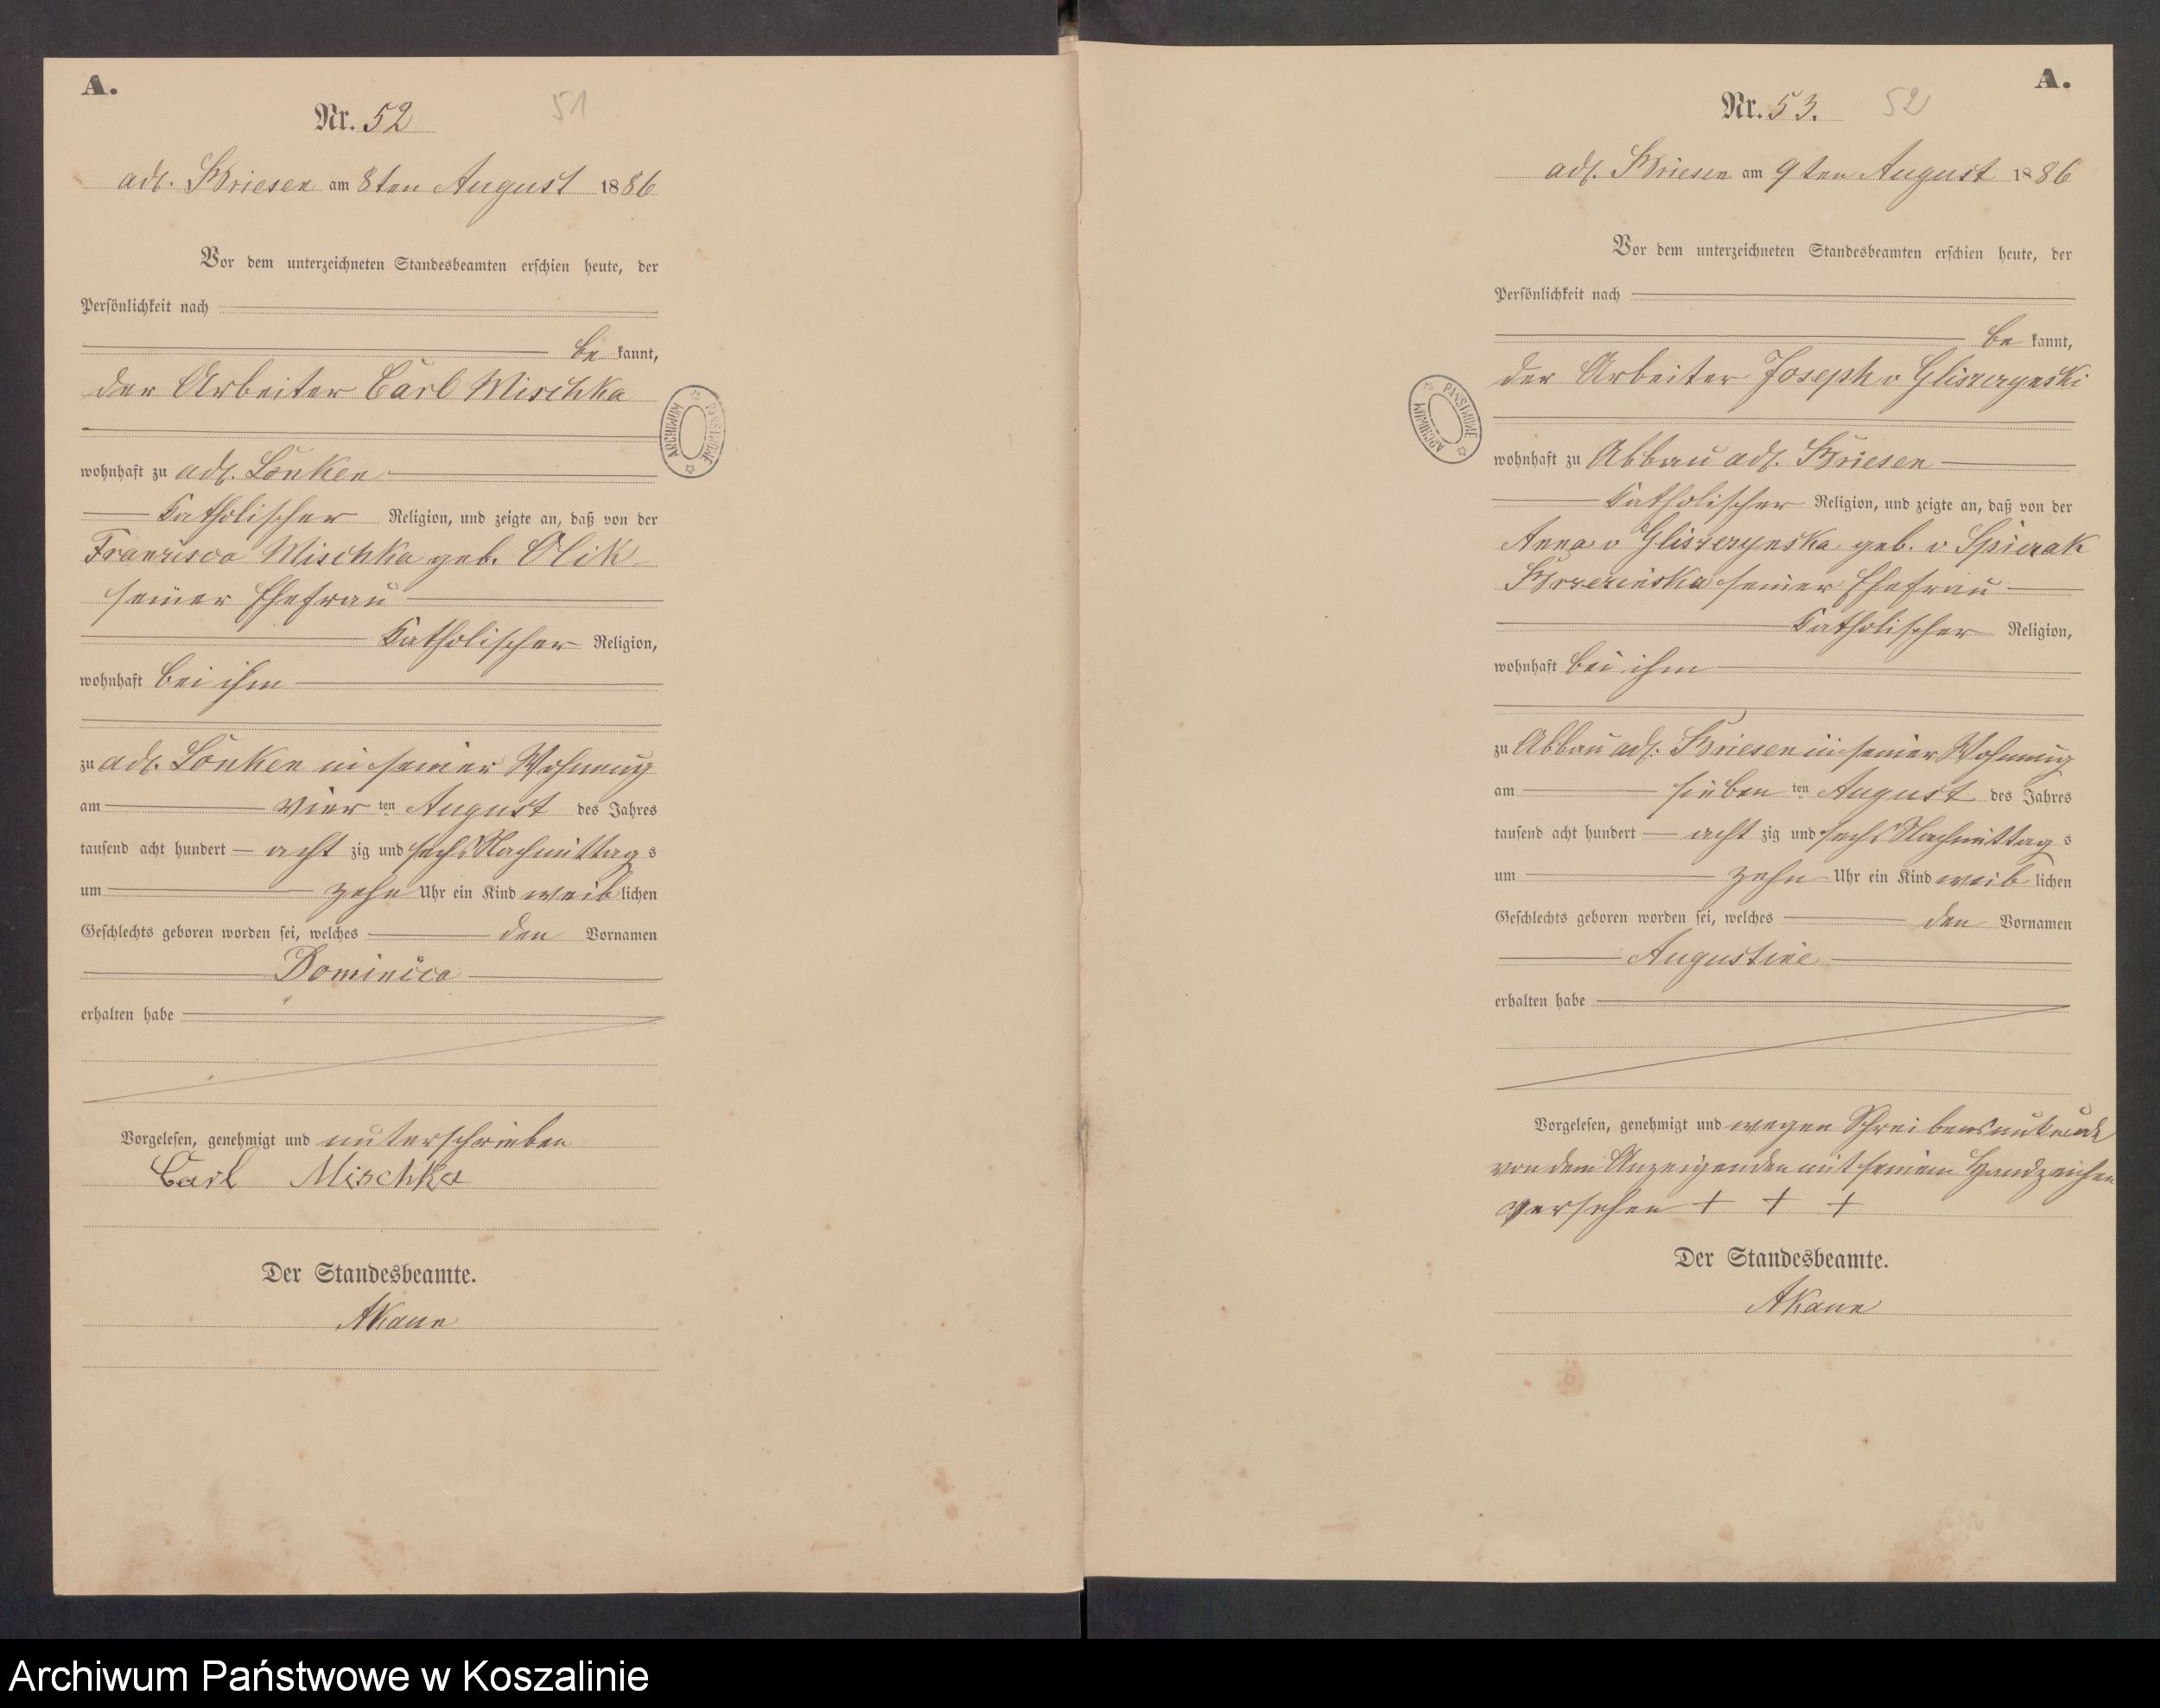 A.
Nr. 52
51
adl. Briesen am 8ten August 1886
Vor dem unterzeichneten Standesbeamten erschien heute, der
Persönlichkeit nach
be kannt,
der Arbeiter Carl Mischka
wohnhaft zu adl. Lonken
Katholischer Religion, und zeigte an, daß von der
Francisca Mischka geb. Olik
seiner Ehefrau
Katholischer Religion,
wohnhaft bei ihm
zu adl. Lonken in seiner Wohnung
am vier ten August des Jahres
tausend acht hundert acht zig und sechs Nachmittag s
um zehn Uhr ein Kind weib lichen
Geschlechts geboren worden sei, welches den Vornamen
Dominica
erhalten habe
Vorgelesen, genehmigt und unterschrieben
Carl Mischka
Der Standesbeamte.
ARCHIWUM PAŃSTWOWE
A.
Nr. 53.
52
adl. Briesen am 9ten August 1886
Vor dem unterzeichneten Standesbeamten erschien heute, der
Persönlichkeit nach
be kannt,
der Arbeiter Joseph v Gliszczynski
wohnhaft zu Abbau adl. Briesen
Katholischer Religion, und zeigte an, daß von der
Anna v Gliszczynska geb. v
seiner Ehefrau
Katholischer Religion,
wohnhaft bei ihm
zu Abbau adl. Briesen in seiner Wohnung
am sieben ten August des Jahres
tausend acht hundert acht zig und sechs Nachmittag s
um zehn Uhr ein Kind weib lichen
Geschlechts geboren worden sei, welches den Vornamen
Augustine
erhalten habe
Vorgelesen, genehmigt und wegen Schreibensunkunde
von dem Anzeigenden mit seinem Handzeichen
versehen + + +
Der Standesbeamte.
ARCHIWUM PAŃSTWOWE
Archiwum Państwowe w Koszalinie